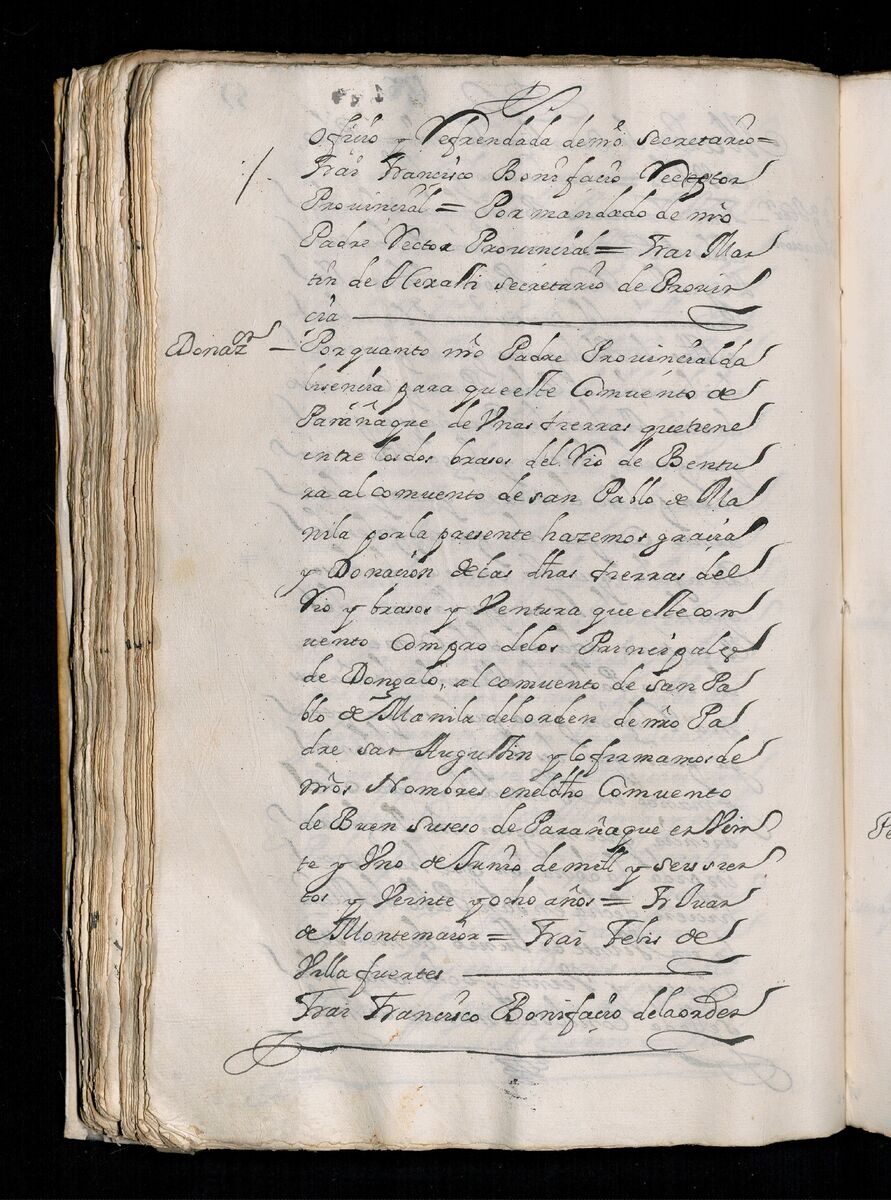 oficio y Refrendada de nro secretario =
Frai Francisco Bonifacio Rector
Provincial = Por mandado de nro
Padre Rector Provincial = Frai Mar
tin de secretario de Provin
cia
Donaz.on — Por quanto nro Padre Provincial da
lisencia para que este Comvento de
Parañaque de Vnas tierras que tiene
entre los dos brasos del Rio de Bentu
ra al comvento de san Pablo de Ma
nila por la presente hazemos gracia
y Donacion de las dhas tierras del
Rio y brasos y Ventura que este con
vento Compro de los Principales
de Dongalo, al comvento de san Pa
blo de Manila del orden de nro Pa
dre san Augustin y lo firmamos de
nros Nombres en el dho Comvento
de Buen suseso de Parañaque en Vein
te y Vno de Junio de mill y seissien
tos y Veinte y ocho años = Fr Juan
de Montemaior = Frai Felis de
Villafuertes
Frai Francisco Bonifacio de la orden